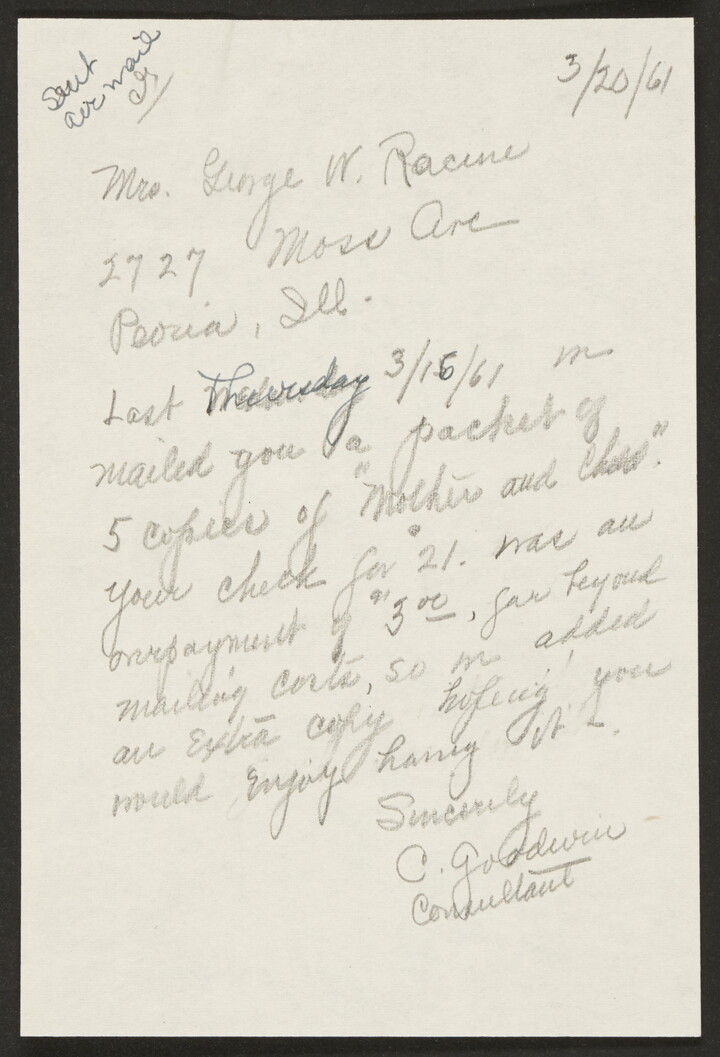 Sent
air mail
CG
3/20/61
Mrs. George W. Racine
2727 Moss Ave
Peoria, Ill.
Last Thursday 3/16/61 we
mailed you a packet of
5 copies of "Mother and Child".
Your check for $21. was an
overpayment of $3.00, far beyond
mailing costs, so we added
an extra copy hoping you
would enjoy having it -.
Sincerely
C. Goodwin
Consultant